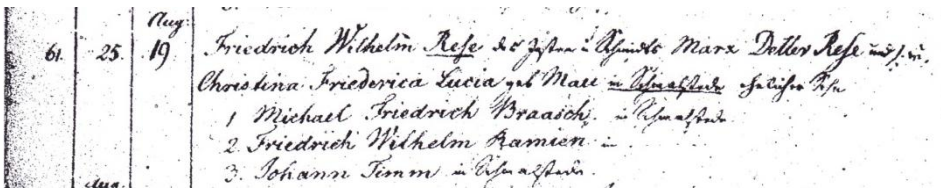 Aug:
61. 25. 19 Friedrich Wilhelm Rese des Insten u Schmidts Marx Detlev Rese und s. Fr.
Christina Friederica Lucia geb Mau in Schmalstede ehelicher Sohn
1 Michael Friedrich Braasch. in Schmalstede
2. Friedrich Wilhelm Ramien in
3. Johann Timm in Schmalstede.
Aug.